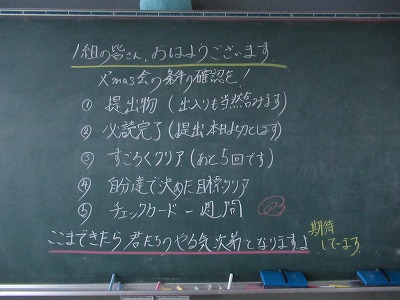 1組の皆さん、おはようございます
X'mas会の条件の確認を！
① 提出物（出入りも当然含みます）
② 必読完了（提出本日〆切とします）
③ すごろくクリア（あと5回です）
④ 自分達で決めた目標クリア
⑤ チェックカード一週間
ここまできたら 君たちのやる気次第となりますよ
期待
しています